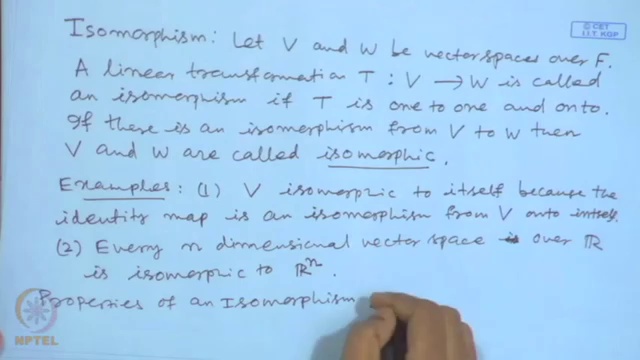 © CET
I.I.T. KGP
Isomorphism: Let V and W be vector spaces over F.
A linear transformation T : V → W is called
an isomorphism if T is one to one and onto.
If there is an isomorphism from V to W then
V and W are called isomorphic.
Examples: (1) V isomorphic to itself because the
identity map is an isomorphism from V onto itself.
(2) Every n dimensional vector space over ℝ
is isomorphic to ℝⁿ.
Properties of an Isomorphism
NPTEL